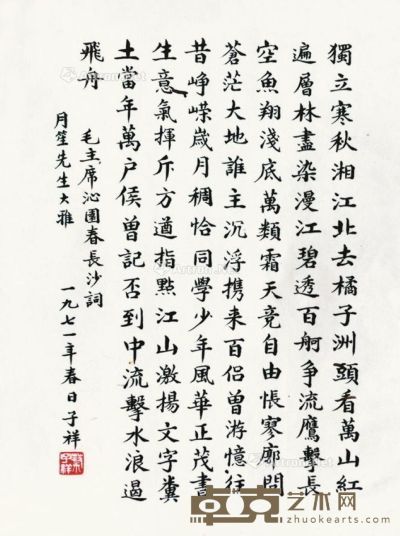 獨立寒秋湘江北去橘子洲頭看萬山紅
遍層林盡染漫江碧透百舸爭流鷹擊長
空魚翔淺底萬類霜天竟自由悵寥廓問
蒼茫大地誰主沉浮携来百侣曾游憶往
昔崢嶸歲月稠恰同學少年風華正茂書
生意氣揮斥方遒指點江山激揚文字糞
土當年萬户侯曾記否到中流擊水浪遏
飛舟
毛主席沁園春長沙詞
月笙先生大雅
一九七一年春日子祥
卓克艺术网
zhuokearts.com